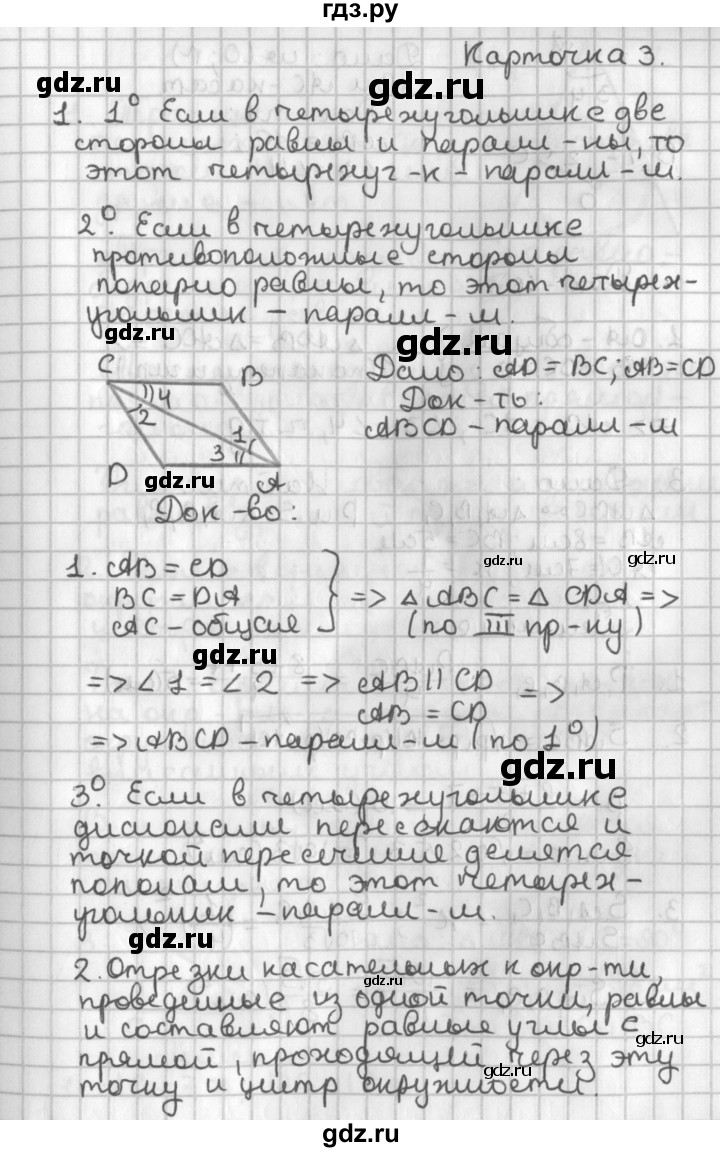 гдз.ру
Карточка 3.
gdz.ru
gdz.ru
1. 1° Если в четырехугольнике две
стороны равны и паралл-ны, то
этот четырехуг-к - паралл-м.
2°. Если в четырехугольнике
противоположные стороны
попарно равны, то этот четырех-
угольник - паралл-м.
gdz.ru
gdz.ru
C
B
4
2
1
3
D
A
gdz.ru
Дано: AD = BC; AB=CD
Док-ть:
ABCD - паралл-м
Док-во:
gdz.ru
gdz.ru
1. AB = CD
BC = DA
AC - общая
=> △ ABC = △ CDA =>
(по III пр-ку)
gdz.ru
=> ∠1 = ∠2 => AB || CD =>
AB = CD
=> ABCD - паралл-м (по 1°)
gdz.ru
3°. Если в четырехугольнике
диагонали пересекаются и
точкой пересечения делятся
пополам, то этот четырех-
угольник - паралл-м.
gdz.ru
2. Отрезки касательных к окр-ти,
gdz.ru
проведенные из одной точки, равны
и составляют равные углы с
прямой, проходящей через эту
gdz.ru
точку и центр окружности.
gdz.ru
gdz.ru